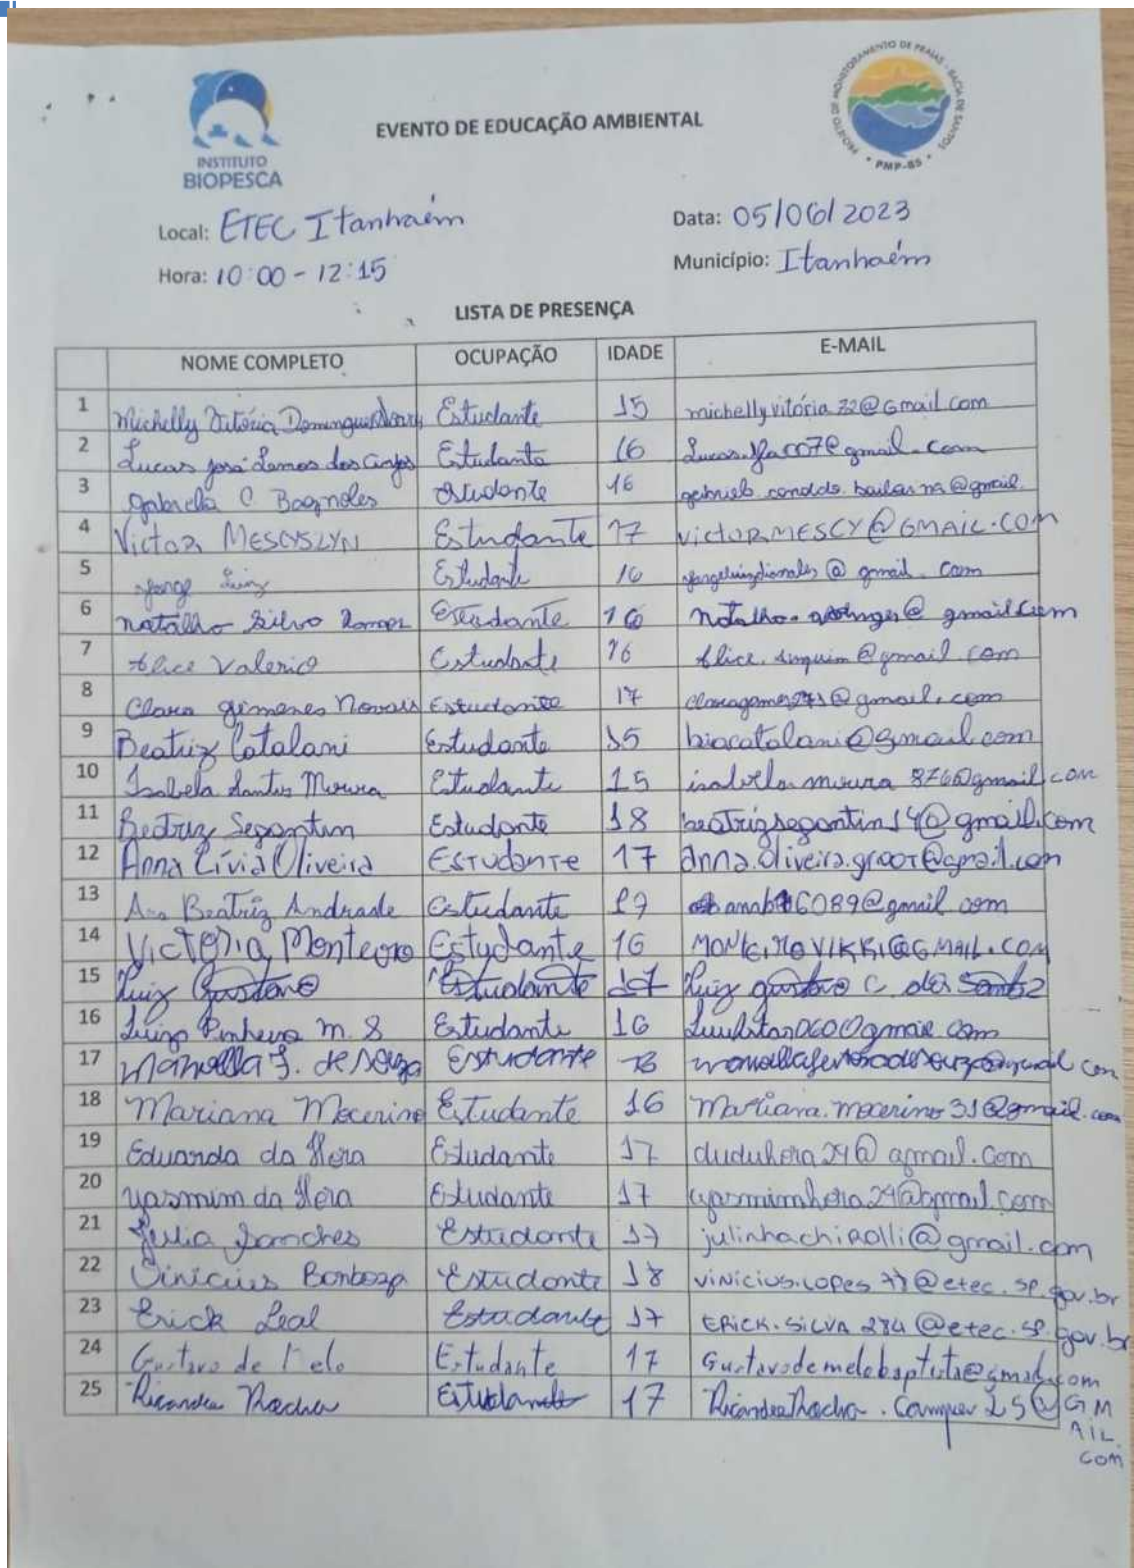 INSTITUTO
BIOPESCA
EVENTO DE EDUCAÇÃO AMBIENTAL
PROJETO DE MONITORAMENTO DE PRAIAS - BACIA DE SANTOS • PMP-BS •
Local: ETEC Itanhaém
Data: 05/06/2023
Hora: 10:00 - 12:15
Município: Itanhaém
LISTA DE PRESENÇA
NOME COMPLETO OCUPAÇÃO IDADE E-MAIL
1 Michelly Vitória Domingues Estudante 15 michellyvitória22@Gmail.com
2 Lucas José Lemos dos Anjos Estudante 16
3 Gabriela C Bagnoles estudante 16
4 Victor MESCYSLYN Estudante 17 victor.MESCY@GMAIL.COM
5 Jorge Luiz Estudante 16
6 Estudante 16
7 Alice Valerio Estudante 16
8 Clara Gimenes Novais Estudante 17
9 Beatriz Catalani Estudante 15 biacatalani@gmail.com
10 Isabela Santos Moura Estudante 15 isabela.moura876@gmail.com
11 Beatriz Segantin Estudante 18 beatrizsegantin14@gmail.com
12 Anna Lívia Oliveira Estudante 17 anna.oliveira.groot@gmail.com
13 Ana Beatriz Andrade Estudante 17
14 Victoria Monteiro Estudante 16 MONTEIROVIKKI@GMAIL.COM
15 Luiz Gustavo Estudante 17 Luiz gustavo C dos Santos
16 Pinheiro M. S Estudante 16
17 Manoella F. de Souza Estudante
18 Mariana Mocerino Estudante 16 Mariana.mocerino31@gmail.com
19 Eduarda da Hora Estudante 17 duduhora24@gmail.com
20 Yasmim da Hora Estudante 17 yasmimhora24@gmail.com
21 Julia Sanches Estudante 17 julinhachirolli@gmail.com
22 Vinicius Barboza Estudante 18 vinicius.lopes77@etec.sp.gov.br
23 Erick Leal Estudante 17 ERICK.SILVA284@etec.sp.gov.br
24 Gustavo de Melo Estudante 17 Gustavodemelobaptista@gmail.com
25 Rocha Estudante 17